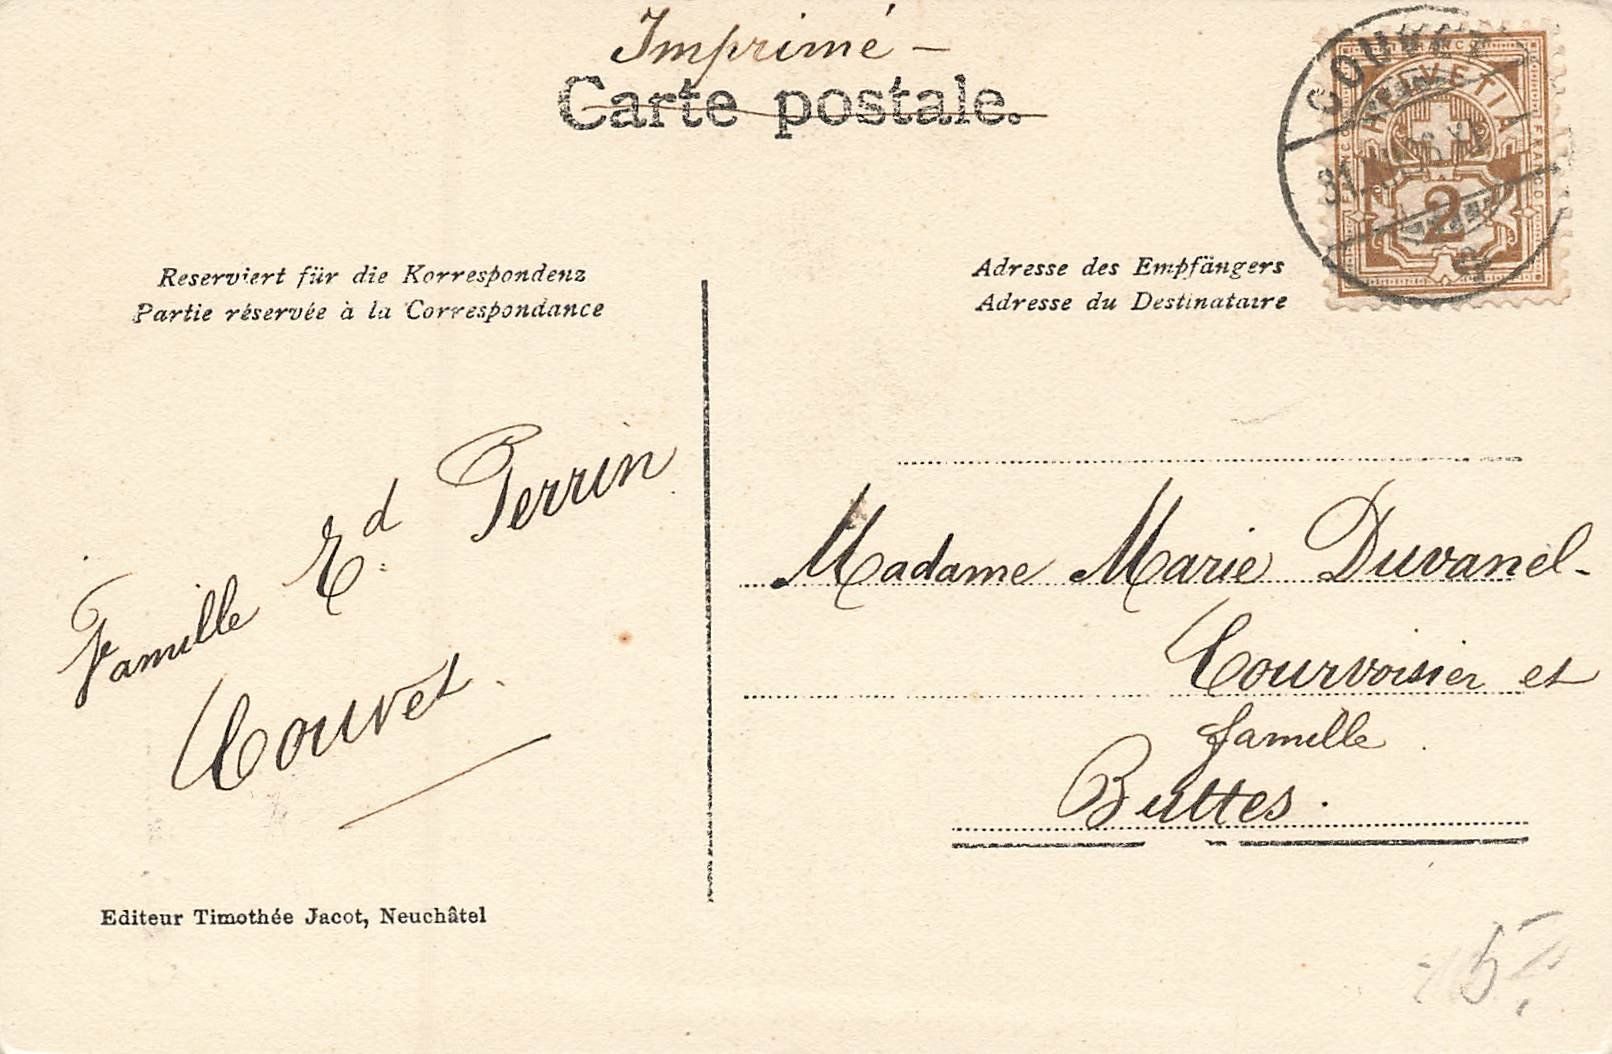 Imprimé -
Carte postale.
COUVET
HELVETIA
FRANCO
FRANCO
2
Reserviert für die Korrespondenz
Partie réservée à la Correspondance
Adresse des Empfängers
Adresse du Destinataire
Famille Ed. Perrin
Couvet.
Madame Marie Duvanel-
Courvoisier et
famille.
Buttes.
Editeur Timothée Jacot, Neuchâtel